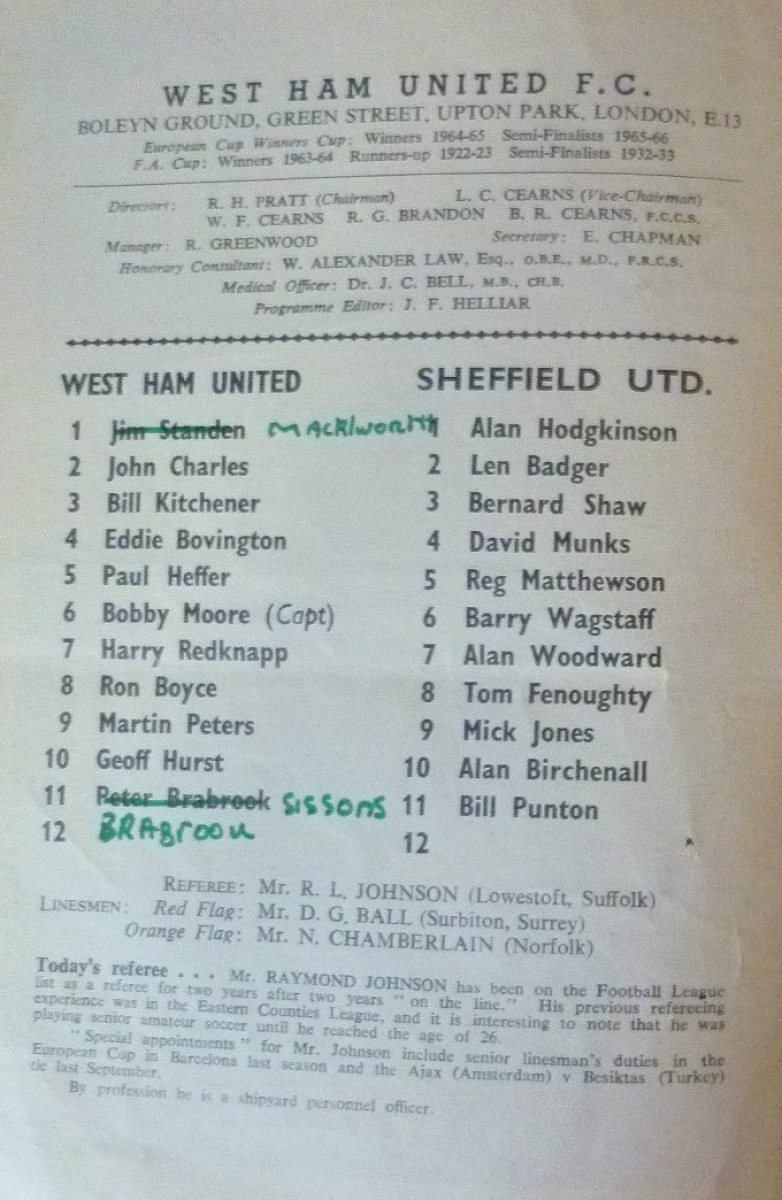 WEST HAM UNITED F.C.
BOLEYN GROUND, GREEN STREET, UPTON PARK, LONDON, E.13
European Cup Winners Cup: Winners 1964-65 Semi-Finalists 1965-66
F.A. Cup: Winners 1963-64 Runners-up 1922-23 Semi-Finalists 1932-33
Directors: R. H. PRATT (Chairman) L. C. CEARNS (Vice-Chairman)
W. F. CEARNS R. G. BRANDON B. R. CEARNS, F.C.C.S.
Manager: R. GREENWOOD Secretary: E. CHAPMAN
Honorary Consultant: W. ALEXANDER LAW, Esq., O.B.E., M.D., F.R.C.S.
Medical Officer: Dr. J. C. BELL, M.B., CH.B.
Programme Editor: J. F. HELLIAR
WEST HAM UNITED SHEFFIELD UTD.
1 Jim Standen MACKWORTH 1 Alan Hodgkinson
2 John Charles 2 Len Badger
3 Bill Kitchener 3 Bernard Shaw
4 Eddie Bovington 4 David Munks
5 Paul Heffer 5 Reg Matthewson
6 Bobby Moore (Capt) 6 Barry Wagstaff
7 Harry Redknapp 7 Alan Woodward
8 Ron Boyce 8 Tom Fenoughty
9 Martin Peters 9 Mick Jones
10 Geoff Hurst 10 Alan Birchenall
11 Peter Brabrook SISSONS 11 Bill Punton
12 BRABROOK 12
REFEREE: Mr. R. L. JOHNSON (Lowestoft, Suffolk)
LINESMEN: Red Flag: Mr. D. G. BALL (Surbiton, Surrey)
Orange Flag: Mr. N. CHAMBERLAIN (Norfolk)
Today's referee . . . Mr. RAYMOND JOHNSON has been on the Football League
list as a referee for two years after two years "on the line." His previous refereeing
experience was in the Eastern Counties League, and it is interesting to note that he was
playing senior amateur soccer until he reached the age of 26.
"Special appointments" for Mr. Johnson include senior linesman's duties in the
European Cup in Barcelona last season and the Ajax (Amsterdam) v Besiktas (Turkey)
tie last September.
By profession he is a shipyard personnel officer.